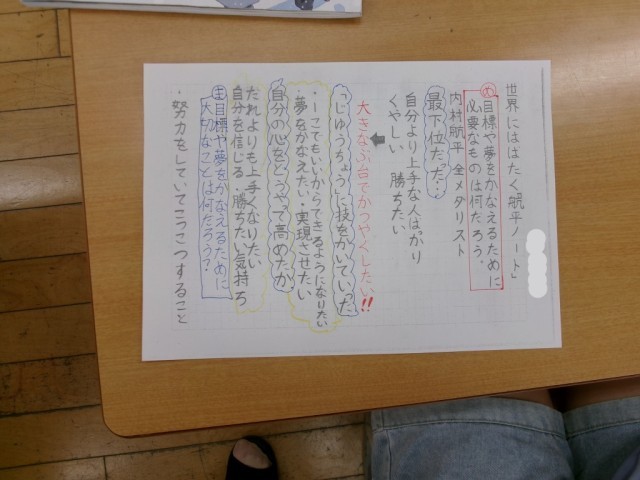 世界にはばたく「航平ノート」
め 目標や夢をかなえるために
必要なものは何だろう。
内村航平 全メダリスト
最下位だった…
自分より上手な人ばかり
くやしい 勝ちたい
大きなぶ台でかつやくしたい!!
うじゅうちょうに技をかいていた
・一こでもいいからできるようになりたい
夢をかなえたい・実現させたい
自分の心をどうやって高めたか
だれよりも上手くなりたい
自分を信じる・勝ちたい気持ち
ま 目標や夢をかなえるために
大切なことは何だろう?
・努力をしていてこつこつすること